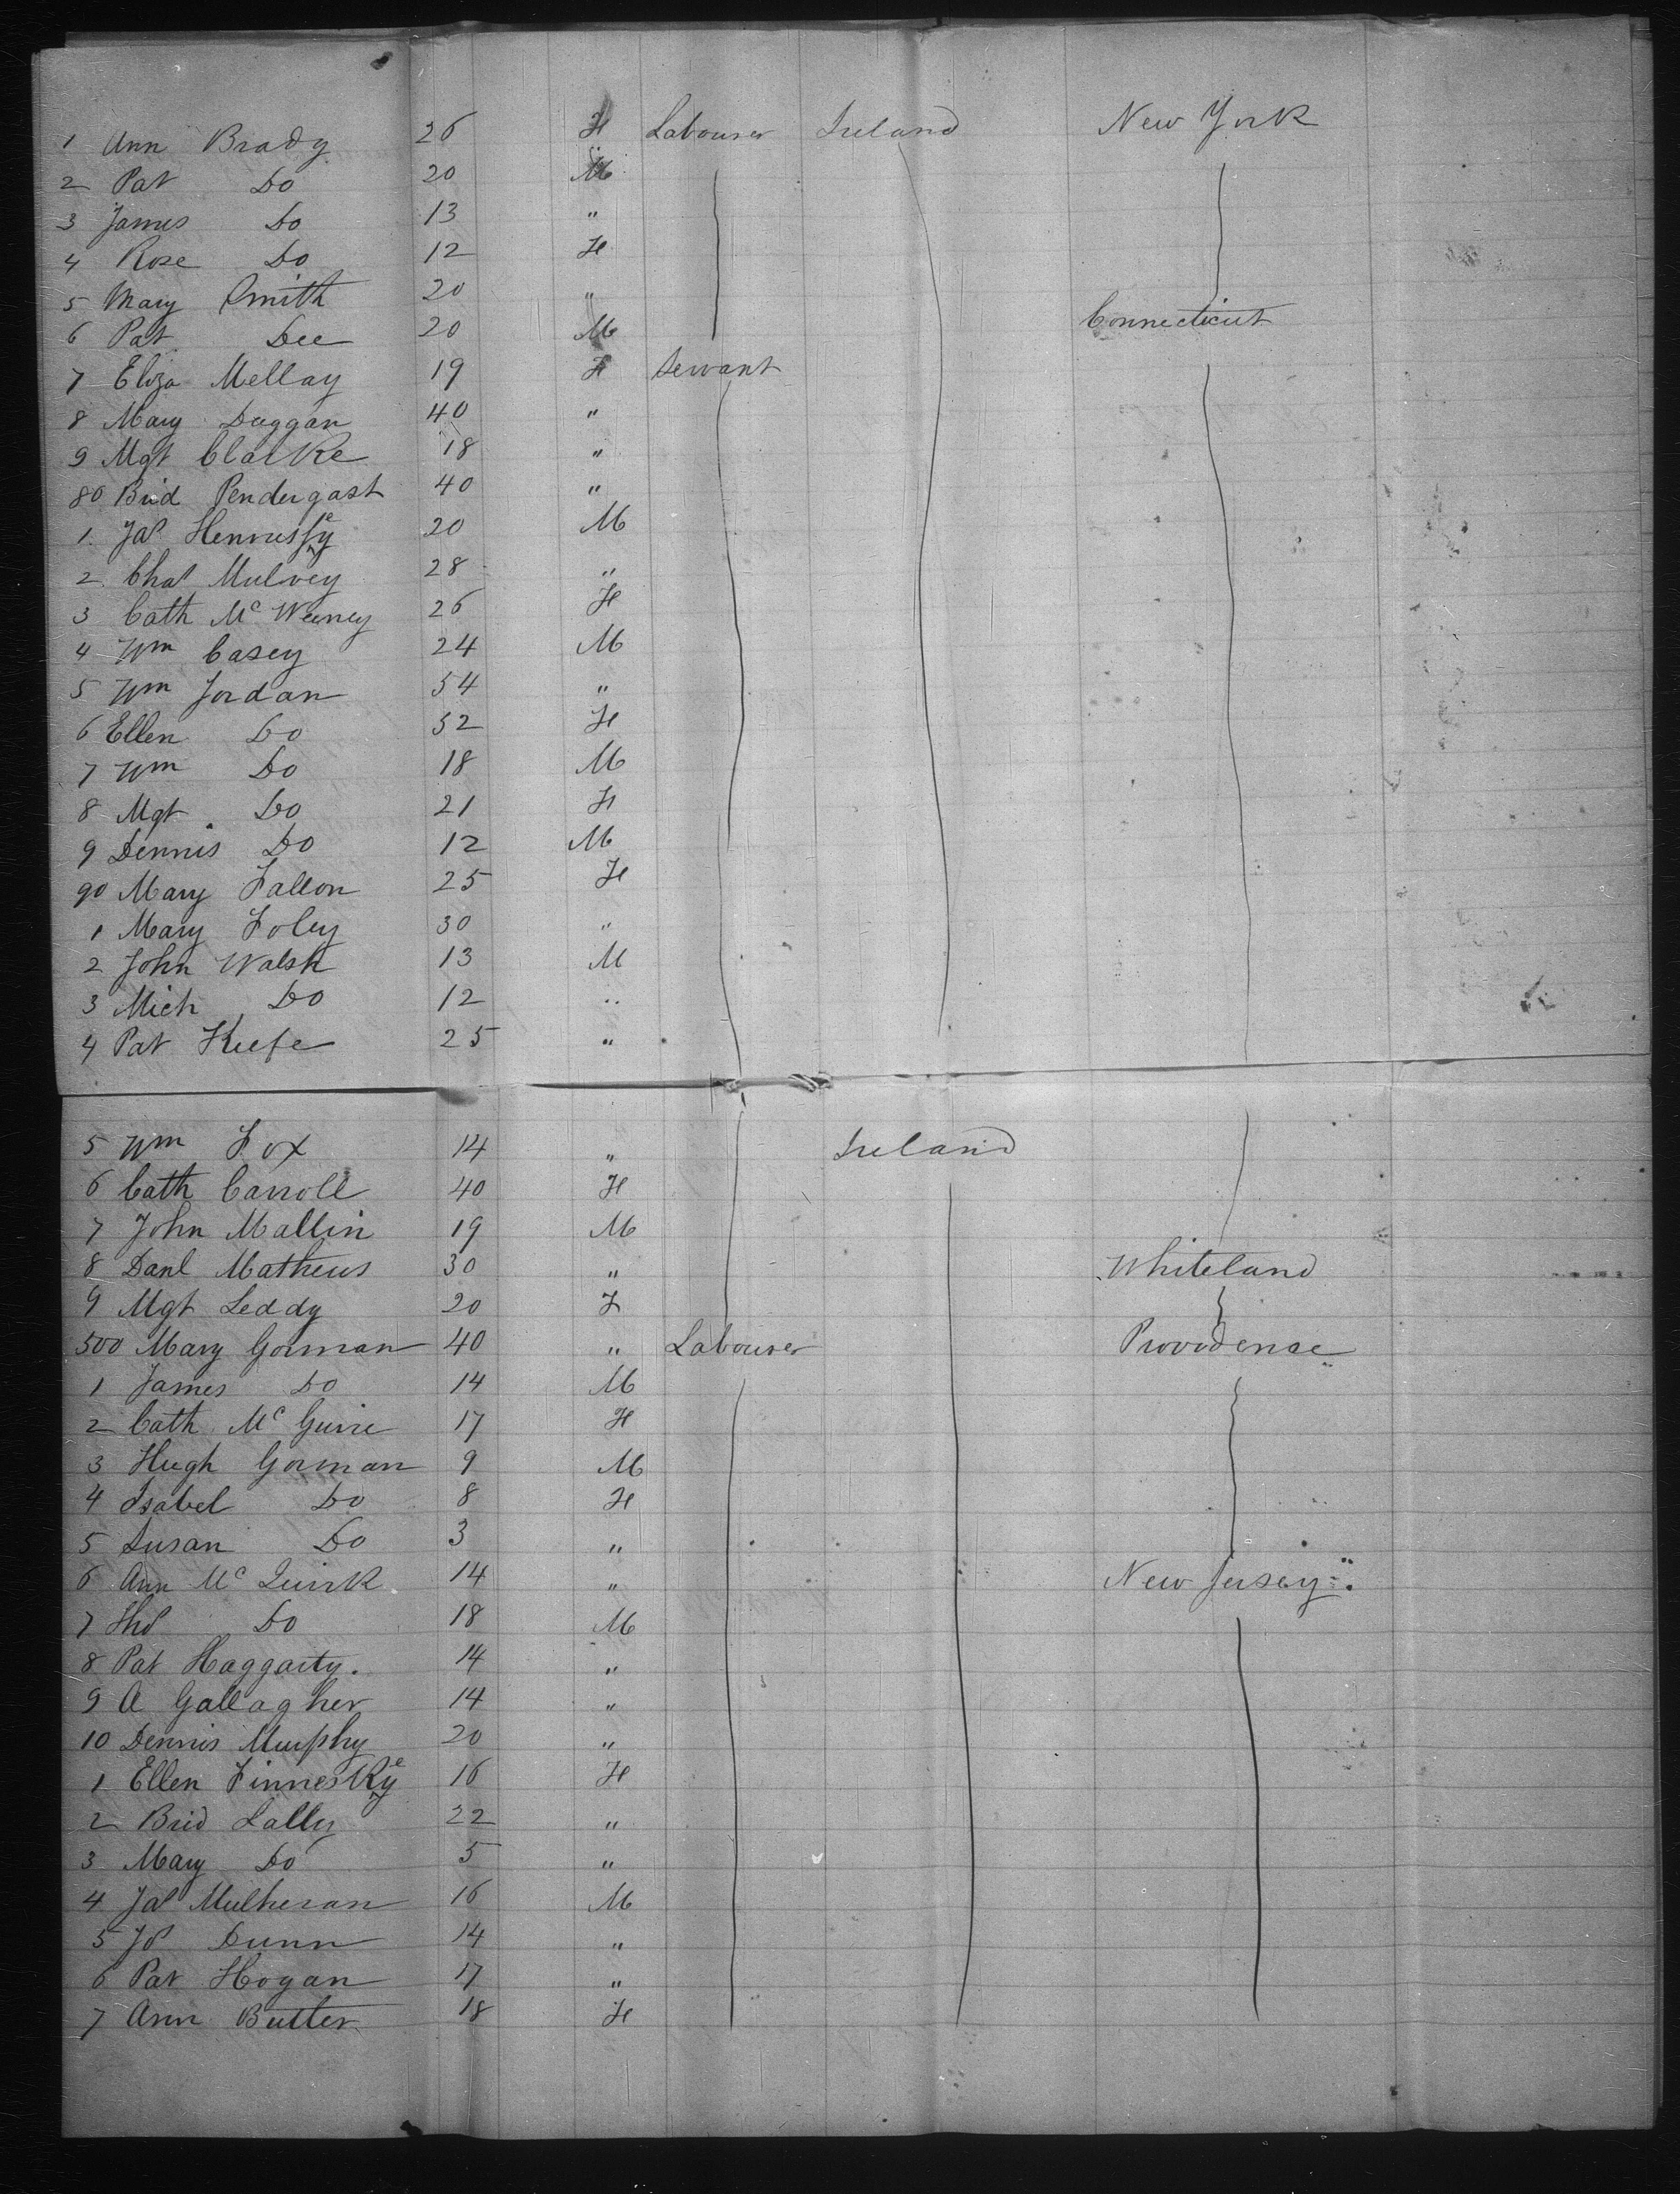 1 Ann Brady 26 F Labourer Ireland New York
2 Pat Do 20 M
3 James Do 13 "
4 Rose Do 12 F
5 Mary Smith 20 "
6 Pat Dee 20 M Connecticut
7 Eliza Mellay 19 F Servant
8 Mary Duggan 40 "
9 Mgt Clarke 18 "
80 Brid Pendergast 40 "
1. Jas Hennessey 20 M
2. Chas Mulvey 28 "
3 Cath Mc Weeney 26 F
4 Wm Casey 24 M
5 Wm Jordan 54 "
6 Ellen Do 52 F
7 Wm Do 18 M
8 Mgt Do 21 F
9 Dennis Do 12 M
90 Mary Fallon 25 F
1 Mary Foley 30 "
2 John Walsh 13 M
3 Mich Do 12 "
4 Pat Keefe 25 "
5 Wm Fox 14 " Ireland
6 Cath Carroll 40 F
7 John Mallin 19 M
8 Danl Mathews 30 " Whiteland
9 Mgt Leddy 20 F
500 Mary Gorman 40 " Labourer Providense
1 James Do 14 M
2 Cath Mc Guire 17 F
3 Hugh Gorman 9 M
4 Isabel Do 8 F
5 Susan Do 3 "
6 Ann Mc Quirk 14 " New Jersey
7 Ths Do 18 M
8 Pat Haggarty. 14 "
9 A Gallagher 14 "
10 Dennis Murphy 20 "
1 Ellen Finneskey 16 F
2 Brid Lally 22 "
3 Mary Do 5 "
4 Jas Mulheran 16 M
5 Js Dunn 14 "
6 Pat Hogan 17 "
7 Ann Butler 18 F